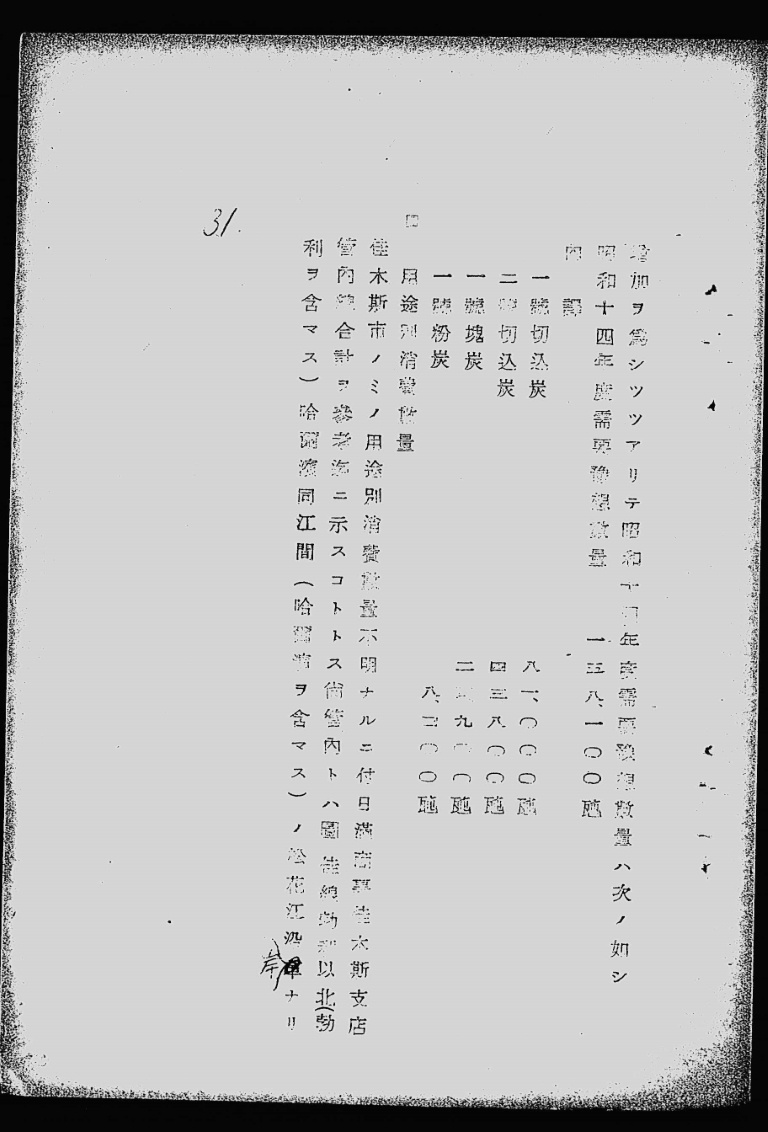 增加ヲ爲シツツアリテ昭和十四年度需要豫想數量ハ次ノ如シ
昭和十四年度需要豫想數量 一五八、一〇〇瓲
內譯
一號切込炭 八一、〇〇〇瓲
二號切込炭 四三、八〇〇瓲
一號塊炭 二 九 〇瓲
一號粉炭 八、 〇〇瓲
用途別消費數量
佳木斯市ノミノ用途別消費數量不明ナルニ付日滿商事佳木斯支店
管內總合計ヲ參考迄ニ示スコトトス尙管內トハ圖佳線勃利以北(勃
利ヲ含マス)哈爾濱同江間(哈爾濱ヲ含マス)ノ松花江沿岸ナリ
31.